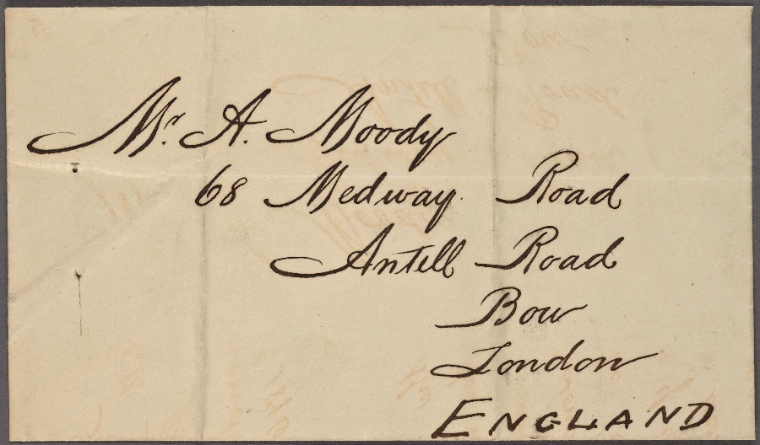 Mr. A. Moody
68 Medway Road
Antill Road
Bow
London
ENGLAND